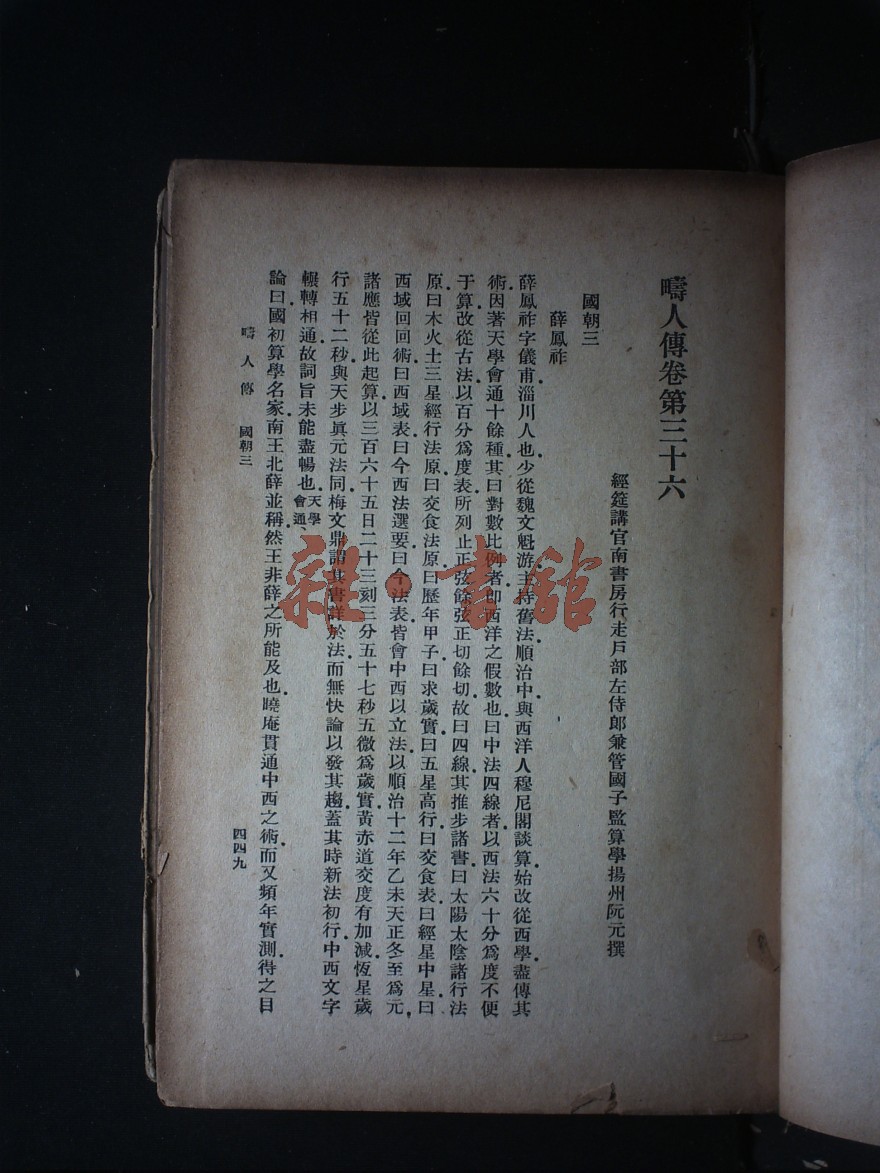 疇人傳卷第三十六
經筵講官南書房行走戶部左侍郎兼管國子監算學揚州阮元撰
國朝三
薛鳳祚
薛鳳祚字儀甫淄川人也少從魏文魁游主持舊法順治中與西洋人穆尼閣談算始改從西學盡傳其
術因著天學會通十餘種其曰對數比例者即西洋之假數也曰中法四線者以西法六十分爲度不便
于算改從古法以百分爲度表所列止正弦餘弦正切餘切故曰四線其推步諸書曰太陽太陰諸行法
原曰木火土三星經行法原曰交食法原曰歷年甲子曰求歲實曰五星高行曰交食表曰經星中星曰
西域回回術曰西域表曰今西法選要曰今法表皆會中西以立法以順治十二年乙未天正冬至爲元
諸應皆從此起算以三百六十五日二十三刻三分五十七秒五微爲歲實黃赤道交度有加減恆星歲
行五十二秒與天步眞元法同梅文鼎謂其書詳於法而無快論以發其趨蓋其時新法初行中西文字
輾轉相通故詞旨未能盡暢也天學會通
論曰國初算學名家南王北薛並稱然王非薛之所能及也曉庵貫通中西之術而又頻年實測得之目
疇人傳 國朝三
四四九
雜·書館